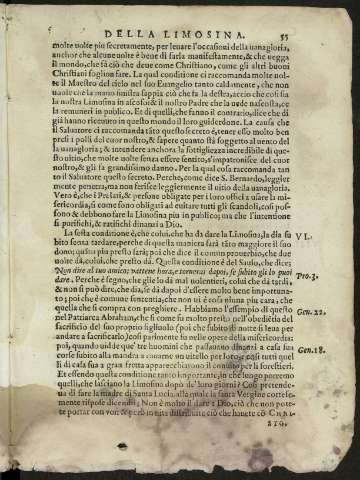 DELLA LIMOSINA. 55
molte uolte più secretamente, per leuare l'occasioni della uanagloria,
anchor che alcune uolte è bene di farla manifestamente, & che uegga
il mondo, che fà ciò che deue come Christiano, come gli altri buoni
Christiani soglion fare. La qual conditione ci raccomanda molte uol-
te il Maestro del cielo nel suo Euangelio tanto caldamente, che non
uuole che la mano sinistra sappia ciò che fa la destra, accio che cosi sia
la nostra Limosina in ascoso & il nostro Padre che la uede nascosta, ce
la remuneri in publico. Et di quelli, che fanno il contrario, dice che di
già hanno riceuuto in questo mondo il loro guidredone. La causa che
il Saluatore ci raccomanda tāto questo secreto è, tener esso molto ben
presi i polsi del cuor nostro, & sapere quanto sta soggetto al uento del
la uanagloria; & intendere anchora la sottigliezza incredibile di que-
sto uitio, che molte uolte senza esser sentito, s'impatronisce del cuor
nostro, & gli fa grandissimo danno. Per la qual cosa raccomanda tan
to il Saluatore questo secreto. Perche, come dice S. Bernardo, leggier
mente penetra, ma non ferisce leggiermente il uitio della uanagloria.
Vero è, che i Prelati, & persone obligate per i loro uffici a usare la mi-
sericordia, si come sono obligati ad euitare tutti gli scandoli, cosi pos-
sono & debbono fare la Limosina piu in publico; ma che l'intentione
si purifichi, & ratifichi dinanzi a Dio.
La sesta conditione è, che colui, che ha da dare la Limosina, la dia su
bito senza tardare, perche di questa maniera sarà tāto maggiore il suo
dono; quanto piu presto sarà; poi che è commun prouerbio, che due
uolte dà, colui, che presto dà. Questa conditione è del Sauio, che dice;
Non dire al tuo amico; vattene hora, e tornerai dapoi, se subito gli lo puoi
dare. Perche è segno, che glie lo dà mal uolentieri, colui che dà tardi,
& non si può dire, che dia, se dà dapoi d'essere molto bene importuna-
to; poi che è commune sententia, che non ui è cosa niuna piu cara, che
quella che si compra con preghiere. Habbiamo l'essempio di questo
nel Patriarca Abrahan, che si come fu molto presto nell'obedièza del
sacrificio del suo proprio figliuolo (poi che subito di notte si leua per
andare a sacrificarlo) cosi parimente fu nelle opere della misericordia:
poi, quando uidde que' tre huomini che passauano dinanzi a casa sua
corse subito alla mandra a torre un uitello per loro, et cosi tutti quel
li di casa sua a gran fretta apparecchiorno il conuito per li forestieri.
Et essendo questa conditione tanto importante, in che luogo porremo
quelli, che lasciano la Limosina dopò de' loro giorni? Cosi pretende-
ua di fare la madre di Santa Lucia, alla quale la santa Vergine cortese-
mente rispose dicendo; Non è molto il dare a Dio, ciò che non pote-
te portar con uoi: & però in uita distribuite ciò che hauete cō CHRI-
STO.
VI.
Pro.3.
Gen.22.
Gen.18.